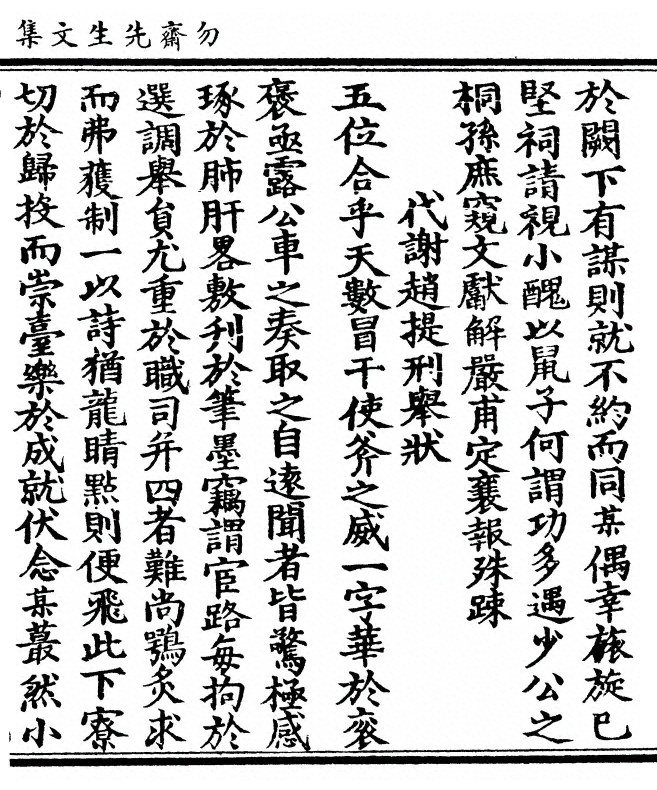 勿齋先生文集
於闕下有謀則就不約而同某偶幸旅旋已
堅祠請視小醜以鼠子何謂功多遇少公之
桐孫庶窺文獻解嚴甫定襄報殊踈
代謝趙提刑舉狀
五位合乎天數冒干使斧之威一字華於衮
褒亟露公車之奏取之自遠聞者皆驚極感
琢於肺肝畧敷刋於筆墨竊謂宦路每拘於
選調舉負尤重於職司并四者難尚鶚炙求
而弗獲制一以詩猶龍睛㸃則便飛此下寮
切於歸投而崇臺樂於成就伏念某蕞然小